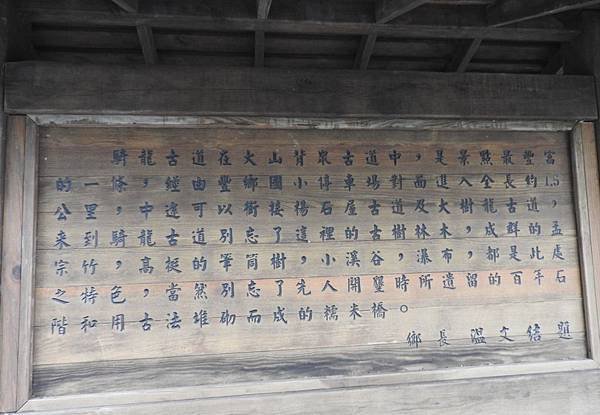 騎龍古道在大山背眾古道中，是景點最豐富
的一條，經由豐鄉國小停車場對面進入全長約1.5
公里，中途可以銜接楊石屋古道及大樹龍古道，
來到騎龍古道別忘了這裡的古樹林木，成群的孟
宗竹，高挺的筆筒樹，小溪谷，瀑布，都是此處
之特色，當然別忘了先人開墾時所遺留的百年石
階和用古法堆砌而成的糯米橋。
鄉長溫文結題